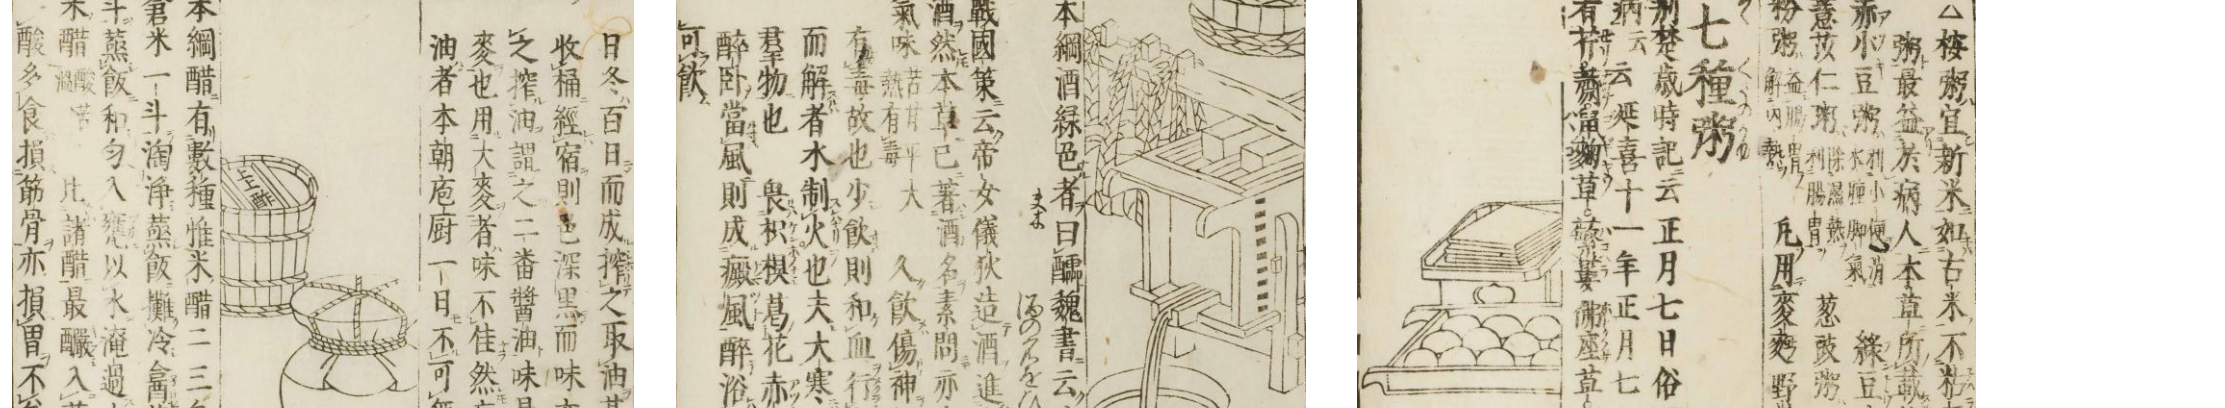 日冬百日而成搾之取油其
收桶經宿則色深黒而味
之搾油謂之二番醬油味
麥也用大麥者味不佳然
油者本朝庖厨一日不可
上々酢
本綱醋有數種惟米醋二三
倉米一斗淘淨蒸飯攤冷盦
斗蒸飯和匀入甕以水淹過
米醋 酸苦温 凡諸醋最釅入
酸多食損筋骨亦損胃不
本綱酒緑色者曰醽魏書云
戰國策云帝女儀狄造酒進
酒然本草已著酒名素問亦
氣味 苦甘辛大熱有毒 久飲傷神
有毒故也少飲則和血行
而解者水制火也夫大寒
羣物也 畏枳椇葛花赤
醉卧當風則成癜風醉浴
可飲
△按粥宜新米如古米不粘
粥最益於病人本草所載
赤小豆粥 利小便消水腫脚氣 緑豆
薏苡仁粥 除濕熱利腸胃 葱豉粥
粉粥 益腸胃解内熱 凡用麥麪野
七種粥
荆楚歳時記云正月七日俗
病云云延喜十一年正月七
有芹薺 草蘩蔞佛座草